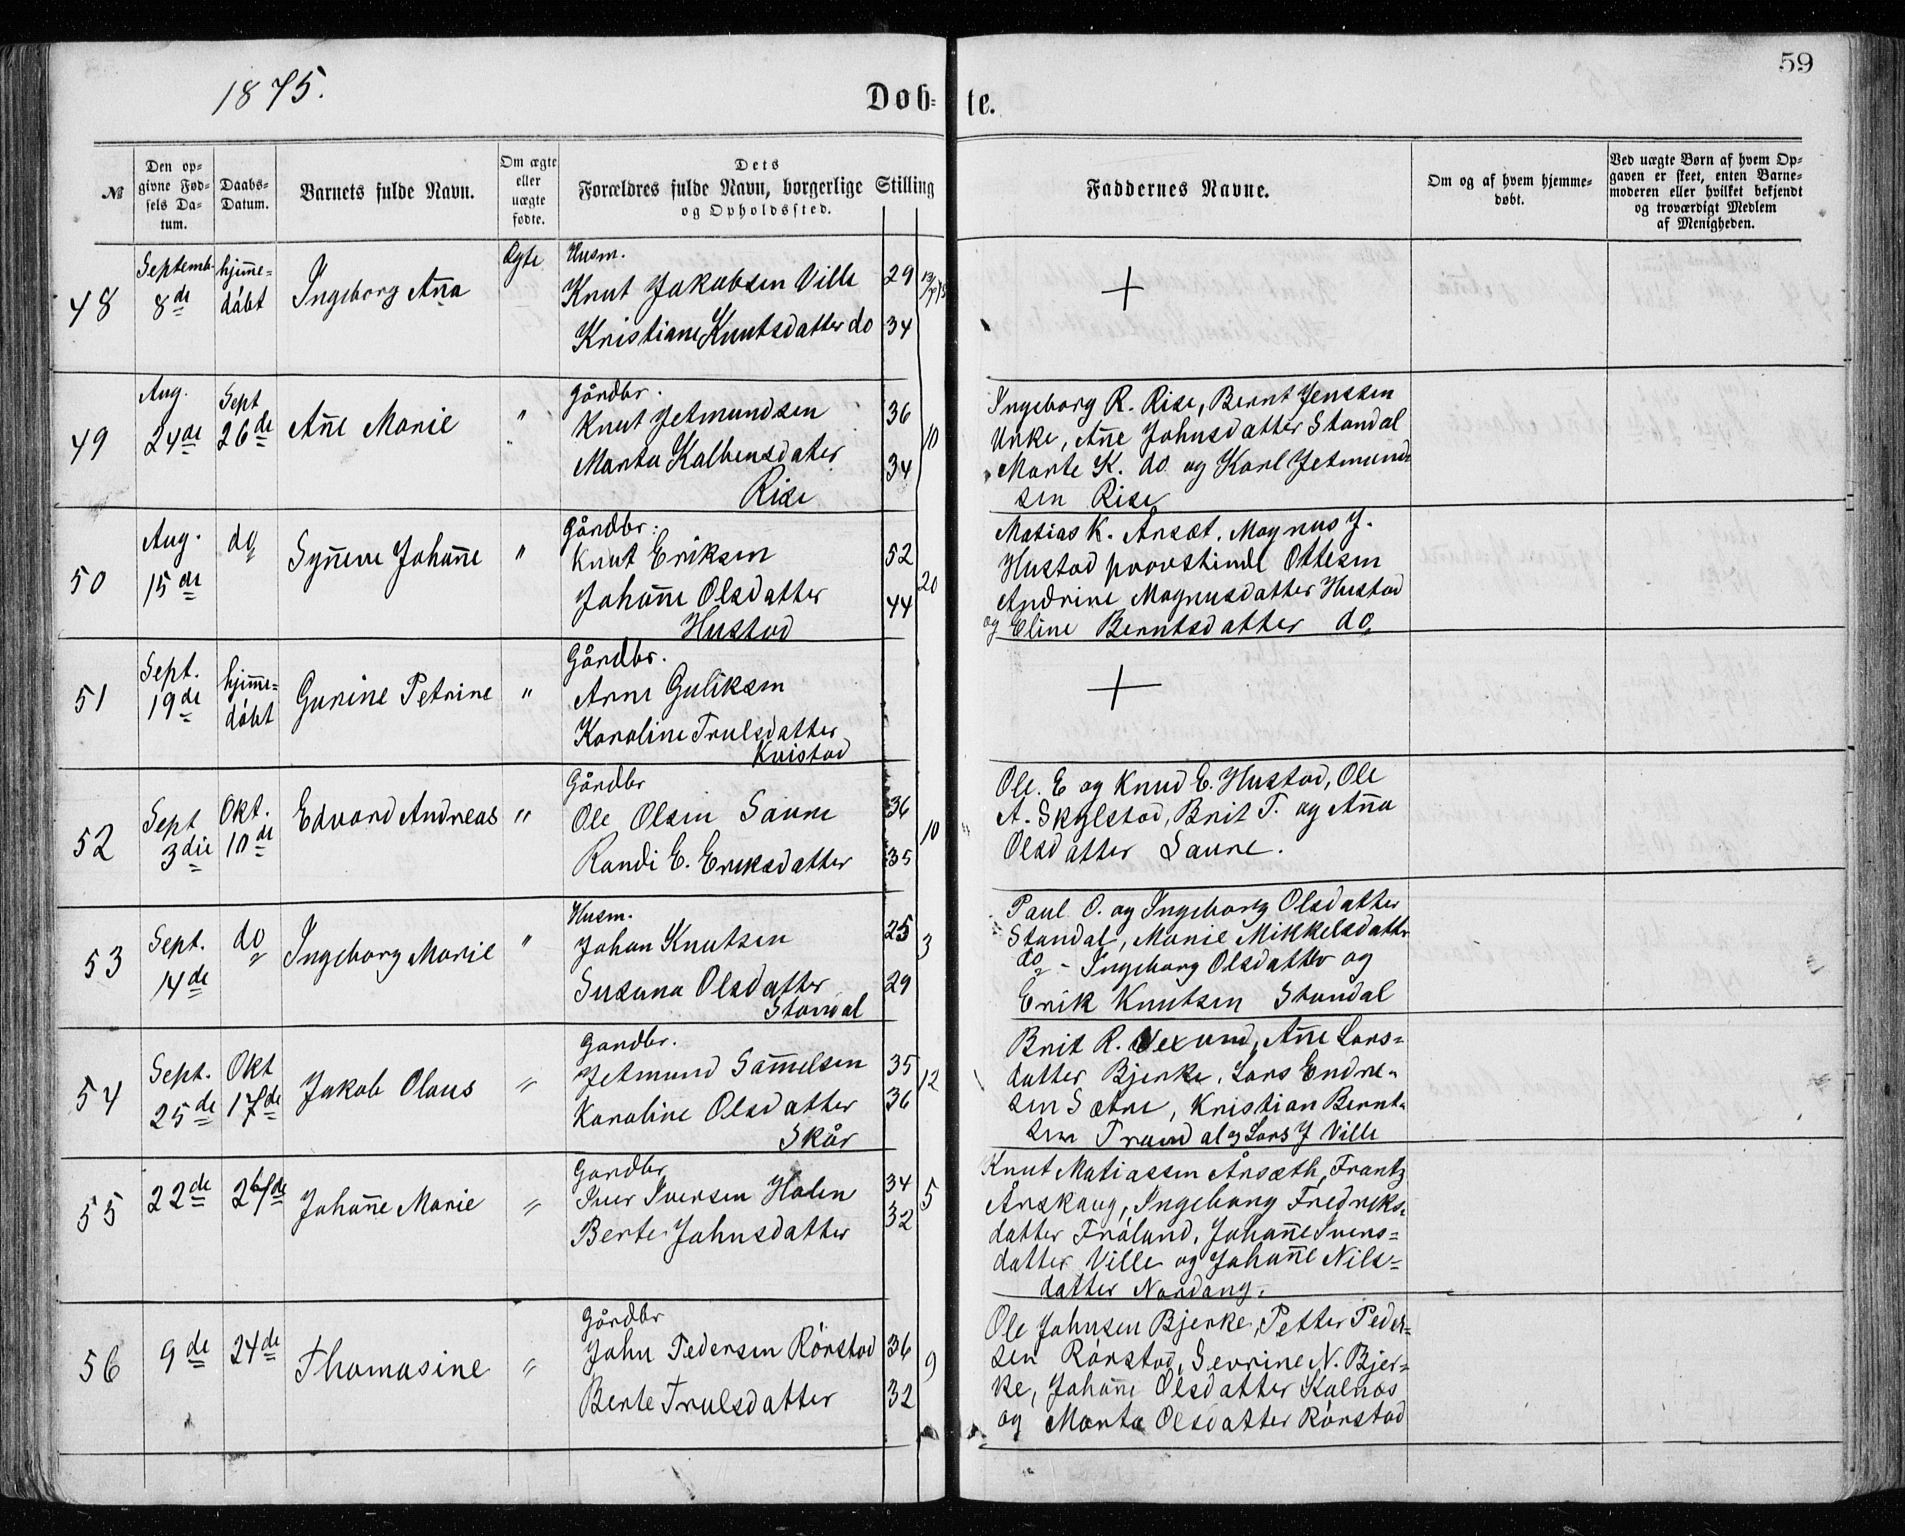 59
1875.
Døb- te.
№
Den opgivne Fødsels Datum.
Daabs-Datum.
Barnets fulde Navn.
Om ægte eller uægte fødte.
Dets
Forældres fulde Navn, borgerlige Stilling
og Opholdssted.
Faddernes Navne.
Om og af hvem hjemme-
døbt.
Ved uægte Børn af hvem Op-
gaven er skeet, enten Barne-
moderen eller hvilket bekjendt
og troværdigt Medlem
af Menigheden.
48
Septemb. 8de
hjem̄e-
døbt
Ingeborg An̄a
Ægte
Husm.
Knut Jakobsen Ville 29
Kristiane Knutsdatter do 34
+
49
Aug. 24de
Sept 26de
An̄e Marie
"
Gårdbr.
Knut Jetmundsen 36
Marta Kalbensdater 34
Rise
10
Ingeborg R. Rise, Bernt Jenssen
Urke, An̄e Johnsdatter Standal
Marte K. do og Karl Jetmund-
sen Rise
50
Aug. 15de
do
Syn̄eve Johan̄e
"
Gårdbr:
Knut Eriksen 52
Johan̄e Olsdatter 44
Hustad
20
Matias K. Årsæt, Magnus J.
Hustad provstinde Ottesen
Andrine Magnusdatter Hustad
og Eline Berntsdatter do
51
Sept. 19de
hjem̄e-
døbt
Gurine Petrine
"
Gårdbr.
Arne Guliksen
Karoline Trulsdatter
Kvistad
+
52
Sept 3die
Okt. 10de
Edvard Andreas
"
Gårdbr
Ole Olsen Saure 36
Randi E. Eriksdatter 35
10
Ole. E og Knud E. Hustad, Ole
A. Skylstad, Brit T. og An̄a
Olsdatter Saure.
53
Sept. 14de
do
Ingeborg Marie
"
Husm.
Johan Knutsen 25
Susana Olsdatter 29
Standal
3
Paul O. og Ingeborg Olsdatter
Standal, Marie Mikkelsdatter
do - Ingeborg Olsdatter og
Erik Knutsen Standal
54
Sept. 25de
Okt 17de
Jakob Olaus
"
Gardbr.
Jetmund Sam̄elsen 35
Karoline Olsdatter 36
Skår
12
Brit R. Vexund, An̄e Lars-
datter Bjerke, Lars Endre-
sen Sætre, Kristian Bernt-
sen Trandal og Lars J Ville
55
22de
Johan̄e Marie
"
Gardbr
Iver Iversen Holen 34
Berte Johnsdatter 32
5
Knut Matiassen Årsæth, Frantz
Årskaug, Ingeborg Fredriks-
datter Frøland, Johan̄e Ivers-
datter Ville og Johan̄e Nils-
datter Nordang.
56
9de
24de
Thomasine
"
Gårdbr
John Pedersen Rørstad 36
Berte Trulsdatter 32
9
Ole Johnsen Bjerke, Petter Peder-
sen Rørstad, Sevrine N. Bjer-
ke, Johan̄e Olsdatter Kalnas
og Marta Olsdatter Rørstad